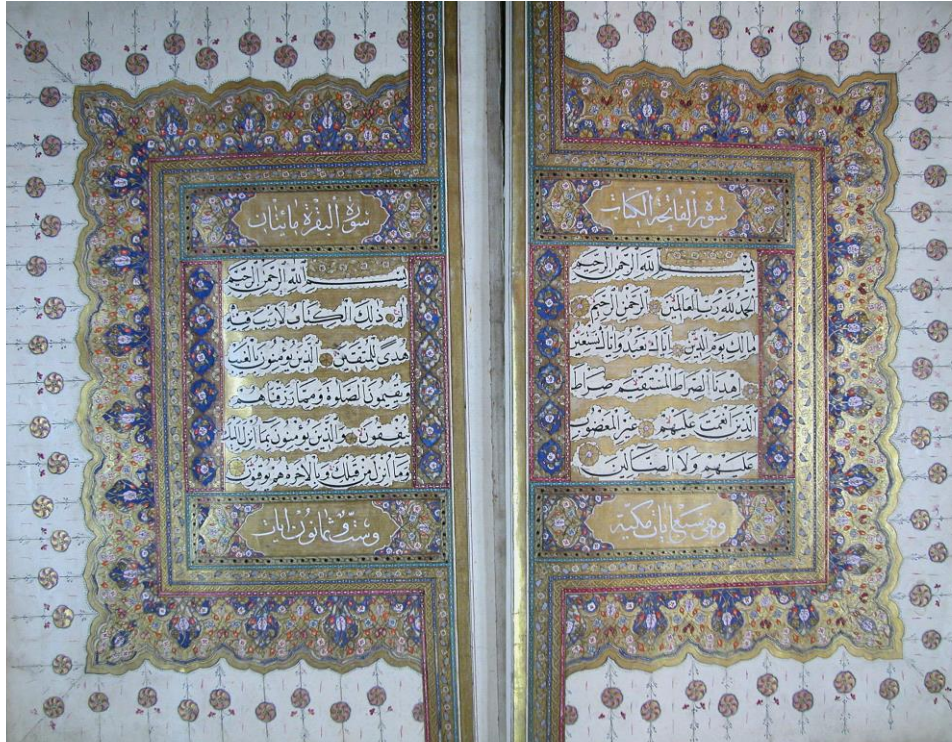 سُورَةُ الْفَاتِحَةِ الْكِتَابِ
بِسْمِ اللّٰهِ الرَّحْمٰنِ الرَّحِيمِ
اَلْحَمْدُ لِلّٰهِ رَبِّ الْعَالَمِينَ الرَّحْمٰنِ الرَّحِيمِ
مَالِكِ يَوْمِ الدِّينِ اِيَّاكَ نَعْبُدُ وَاِيَّاكَ نَسْتَعِينُ
اِهْدِنَا الصِّرَاطَ الْمُسْتَقِيمَ صِرَاطَ
الَّذِينَ اَنْعَمْتَ عَلَيْهِمْ غَيْرِ الْمَغْضُوبِ
عَلَيْهِمْ وَلَا الضَّالِّينَ
وَهِيَ سَبْعُ اٰيَاتٍ مَكِّيَّةٌ
سُورَةُ الْبَقَرَةِ مِايَتَانِ
بِسْمِ اللّٰهِ الرَّحْمٰنِ الرَّحِيمِ
الٓمٓ ذٰلِكَ الْكِتَابُ لَا رَيْبَ فِيهِ
هُدًى لِلْمُتَّقِينَ الَّذِينَ يُؤْمِنُونَ بِالْغَيْبِ
وَيُقِيمُونَ الصَّلٰوةَ وَمِمَّا رَزَقْنَاهُمْ
يُنْفِقُونَ وَالَّذِينَ يُؤْمِنُونَ بِمَا اُنْزِلَ اِلَيْكَ
وَمَا اُنْزِلَ مِنْ قَبْلِكَ وَبِالْاٰخِرَةِ هُمْ يُوقِنُونَ
وَسِتٌّ وَثَمَانُونَ اٰيَاتٍ